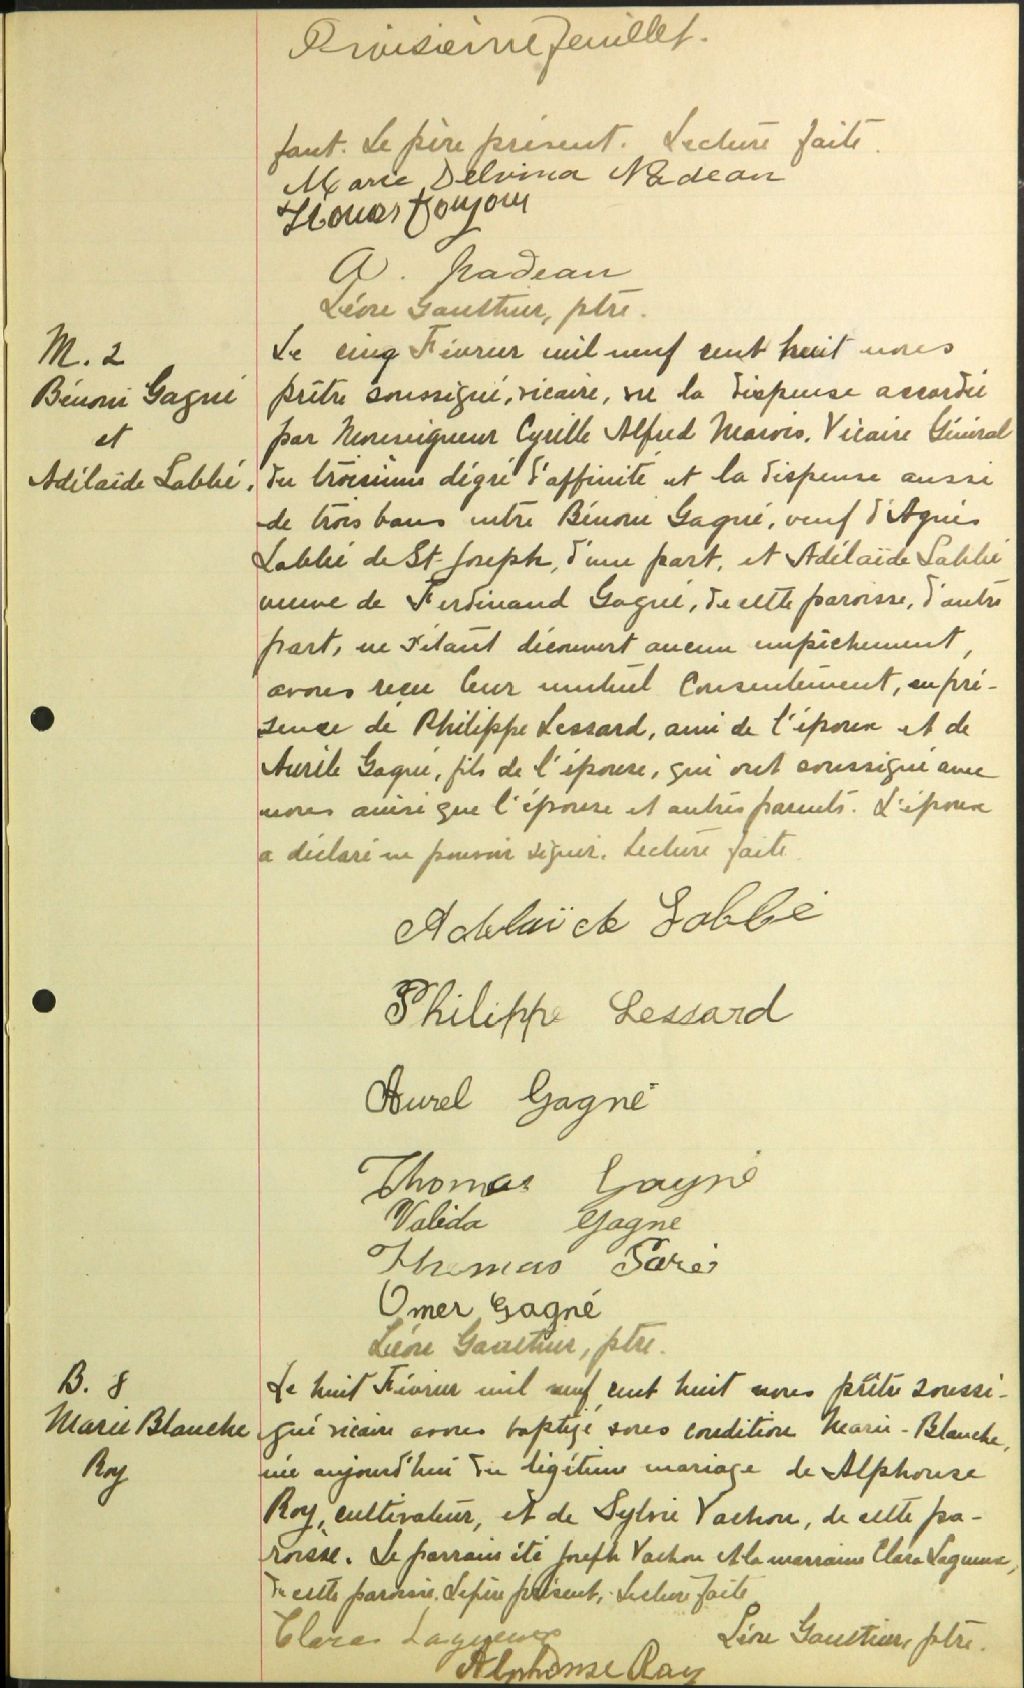 Troisième feuillet.
fant. Le père présent. Lecture faite.
Marie Delvina Nadeau
A. Nadeau
Léon Gauthier, ptre.
M. 2
Bénoni Gagné
et
Adélaïde Labbé.
Le cinq Février mil neuf cent huit nous
prêtre soussigné, vicaire, vu la dispense accordée
par Monseigneur Cyrille Alfred Marois, Vicaire Général
du troisième dégré d'affinité et la dispense aussi
de trois bans entre Bénoni Gagné, veuf d'Agnès
Labbé de St-Joseph, d'une part, et Adélaïde Labbé
veuve de Ferdinand Gagné, de cette paroisse, d'autre
part, ne s'étant découvert aucun empêchement,
avons reçu leur mutuel consentement, en pré-
sence de Philippe Lessard, ami de l'époux et de
Aurèle Gagné, fils de l'épouse, qui ont soussigné avec
nous ainsi que l'épouse et autres parents. L'époux
a déclaré ne pouvoir signer. Lecture faite
Adelaïde Labbé
Philippe Lessard
Aurel Gagné
Thomas Gagné
Valida Gagne
Thomas Paré
Omer Gagné
Léon Gauthier, ptre.
B. 8
Marie Blanche
Roy
Le huit Février mil neuf cent huit nous prêtre soussi-
gné vicaire avons baptisé sous condition Marie-Blanche,
née aujourd'hui du légitime mariage de Alphonse
Roy, cultivateur, et de Sylvie Vachon, de cette pa-
roisse. Le parrain été Joseph Vachon et la marraine Clara Lagueux,
de cette paroisse. Le père présent. Lecture faite
Clara Lagueux Léon Gauthier, ptre.
Alphonse Roy